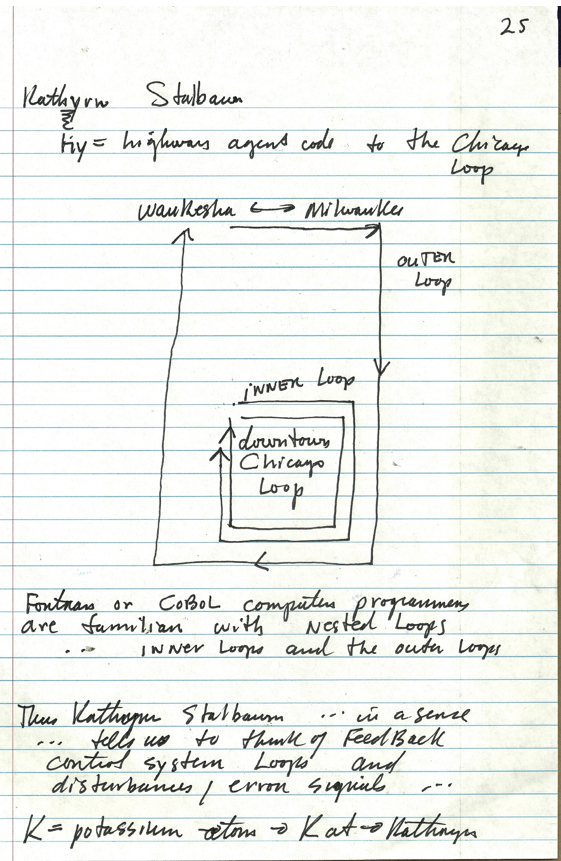 25
Kathyrn Stalbaum
Hy = highways agent code to the Chicago
Loop
Waukesha ↔ Milwaukee
OUTER
Loop
INNER Loop
downtown
Chicago
Loop
Fortran or COBOL computer programmers
are familiar with Nested Loops
... INNER Loops and the outer Loops
Thus Kathryn Stalbaum ... in a sense
... tells us to think of FeedBack
control system Loops and
disturbances / error signals ...
K = potassium atom → K at → Kathryn